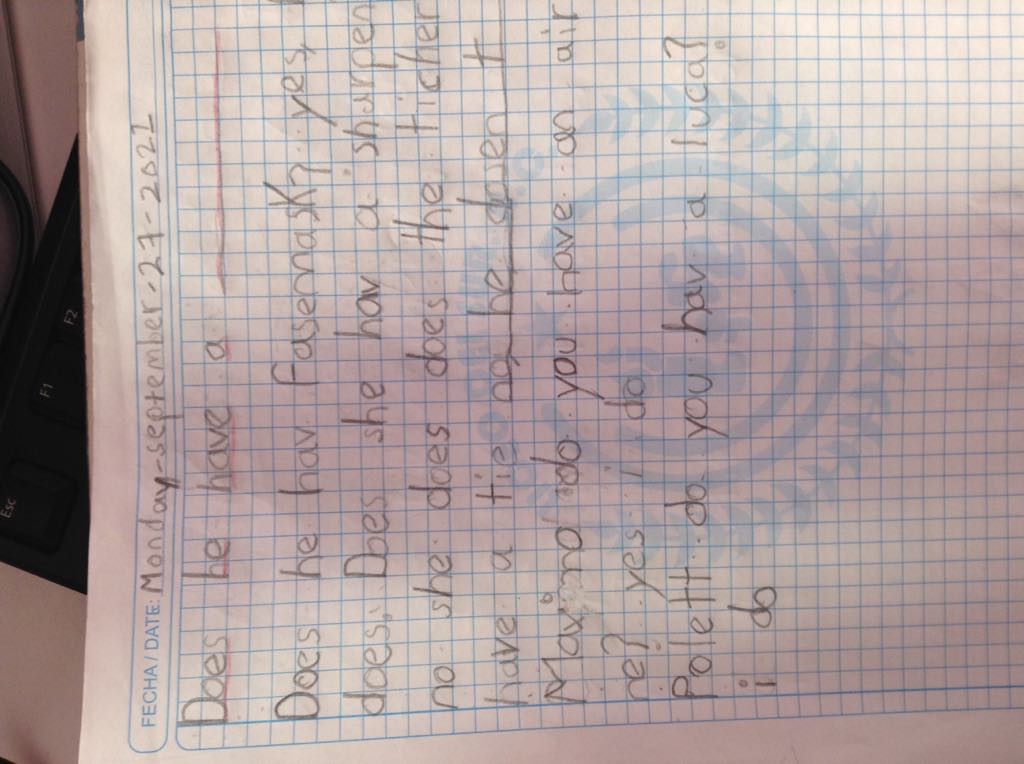 FECHA/DATE: Monday-september-27-2021
Does he have a
Does he hav fasemask? yes,
does. Does she hav a sharpen
no she does does the ticher
have a tie no he doesen t
Maximo do you have an air
ne? yes i do
Polett do you hav a luca?
i do
Esc
F1
F2